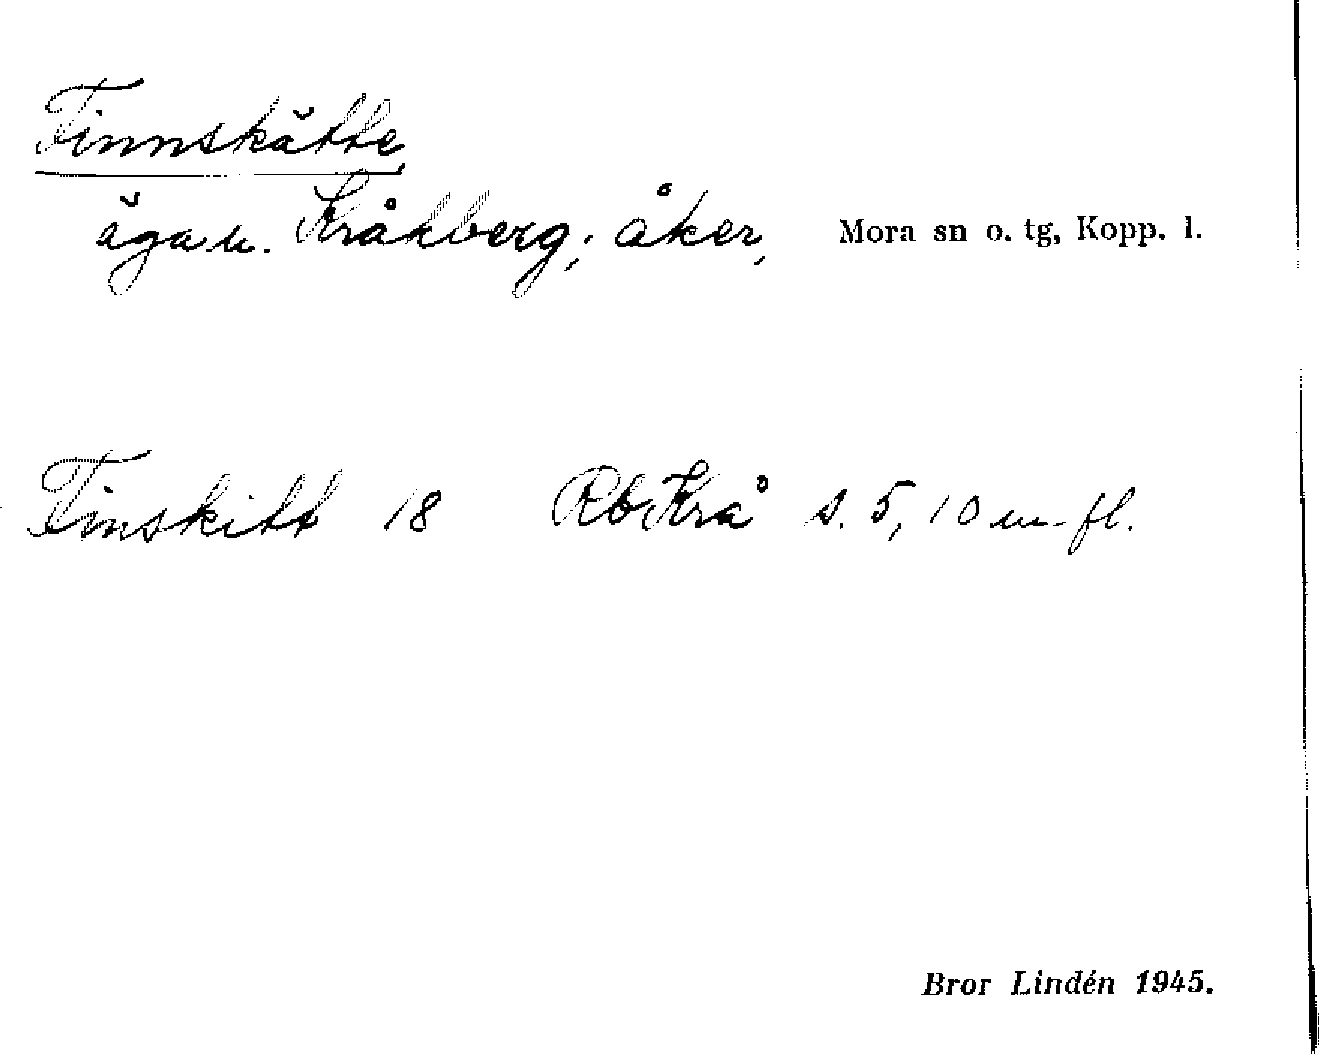 Finnskätte
äga u. Kråkberg; åker, Mora sn o. tg, Kopp. l.
Finskitt 18 Rb Krå s. 5, 10 m fl.
Bror Lindén 1945.